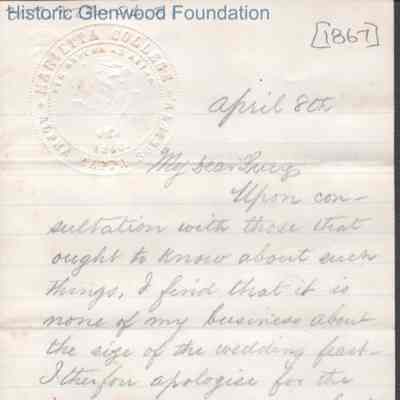 Historic Glenwood Foundation
[1867]
MARIETTA COLLEGE
April 8th
My dear
Upon con-
sultation with those that
ought to know about such
things, I find that it is
none of my business about
the size of the wedding feast-
I therfore apologise for the